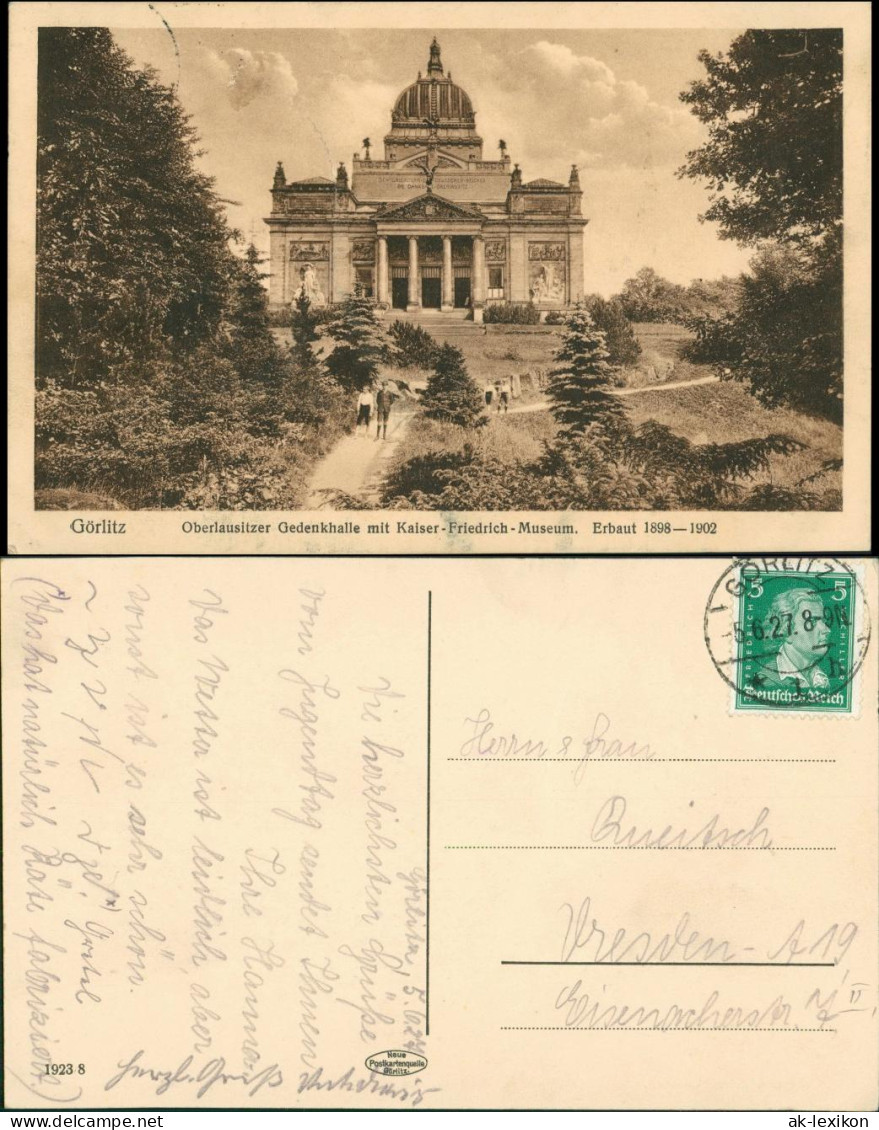 Görlitz Oberlausitzer Gedenkhalle mit Kaiser-Friedrich-Museum. Erbaut 1898—1902
GÖRLITZ
-5.6.27. 8-9N
* 1 h
5 5
FRIEDRICH SCHILLER
Deutsches Reich
Herrn & Frau
Kneitsch
Dresden-A 19
Eisenacherstr. 7 II
Görlitz, 5.6.27
Die herzlichsten Grüße
vom Jugendtag sendet Ihnen
Ihre Hanna.
Das Wetter ist leidlich, aber
sonst ist es sehr schön.
Gretel
(Das hat natürlich Käte fabriziert)
Herzl. Gruß
1923 8
Neue
Postkartenquelle
Görlitz.
ak-lexikon